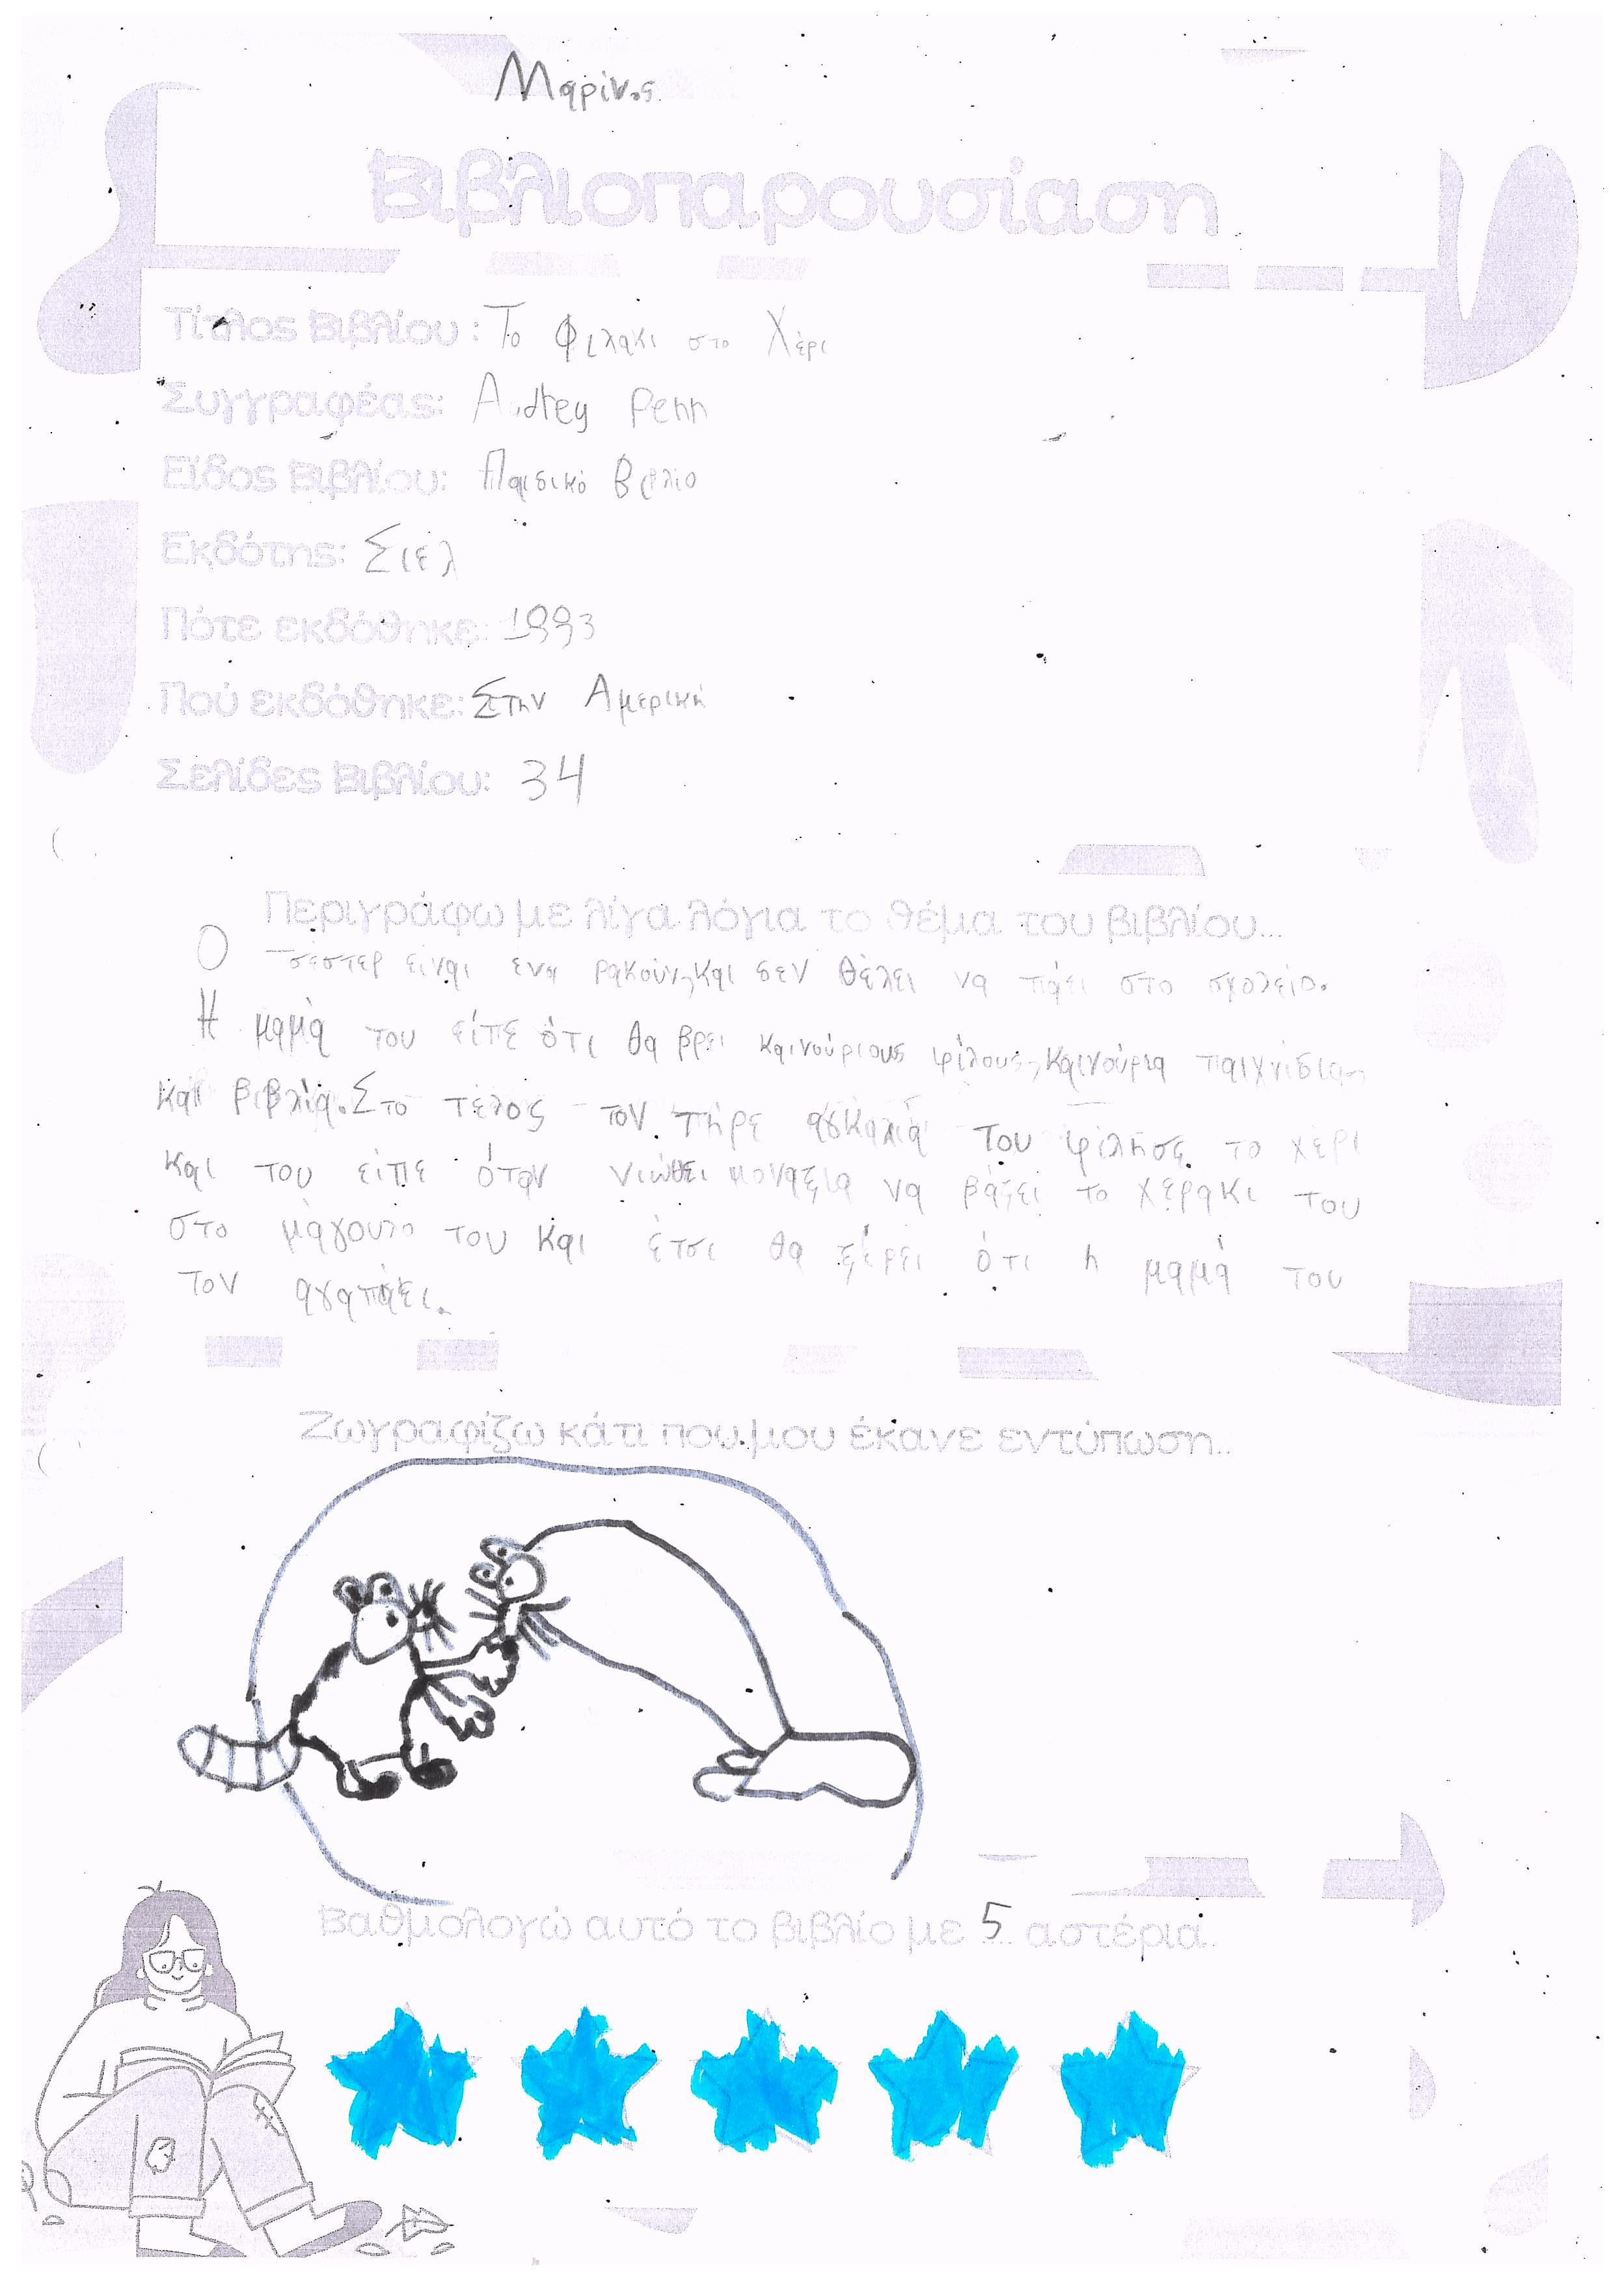 Μαρίνος
Βιβλιοπαρουσίαση
Τίτλος Βιβλίου: Το Φιλακι στο Χέρι
Συγγραφέας: Audrey Penn
Είδος Βιβλίου: Παιδικό βιβλιο
Εκδότης: Σιελ
Πότε εκδόθηκε: 1993
Πού εκδόθηκε: Στην Αμερική
Σελίδες Βιβλίου: 34
Περιγράφω με λίγα λόγια το θέμα του βιβλίου...
Ο τσέστερ είναι ενα ρακούν, και δεν θέλει να πάει στο σχολείο.
Η μαμά του είπε ότι θα βρει καινούριους φίλους, καινούρια παιχνίδια,
και βιβλία. Στο τέλος τον πήρε αγκαλιά του φίλησε το χέρι
και του είπε όταν νιώθει μοναξια να βάζει το χερακι του
στο μάγουλο του και έτσι θα ξέρει ότι η μαμά του
τον αγαπάει.
Ζωγραφίζω κάτι που μου έκανε εντύπωση..
Βαθμολογώ αυτό το βιβλίο με 5 αστέρια